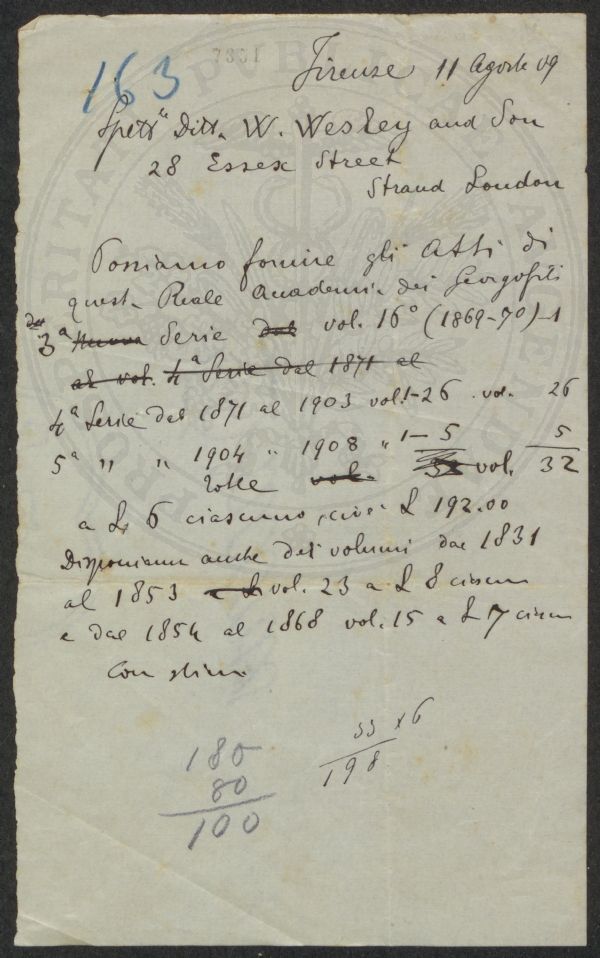 163
7331
Firenze 11 Agosto 09
Spett. Ditta W. Wesley and Son
28 Essex Street
Strand London
Possiamo fornire gli Atti di
questa Reale Accademia dei Georgofili
3ª Nuova Serie dal vol. 16° (1869-70) - 1
al vol. 4ª Serie dal 1871 al
4ª Serie dal 1871 al 1903 vol. 1-26 . vol. 26
5ª " " 1904 " 1908 " 1-5 5
vol. vol. 32
a L. 6 ciascuno, cioè L 192.00
Disponiamo anche dei volumi dal 1831
al 1853 a L. vol. 23 a L 8 ciascun
e dal 1854 al 1868 vol. 15 a L 7 ciascun
Con stima
33 x 6
198
180
80
100